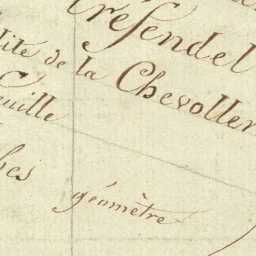 trésendel
dite de la Chevoller
euille
hes
géomètre